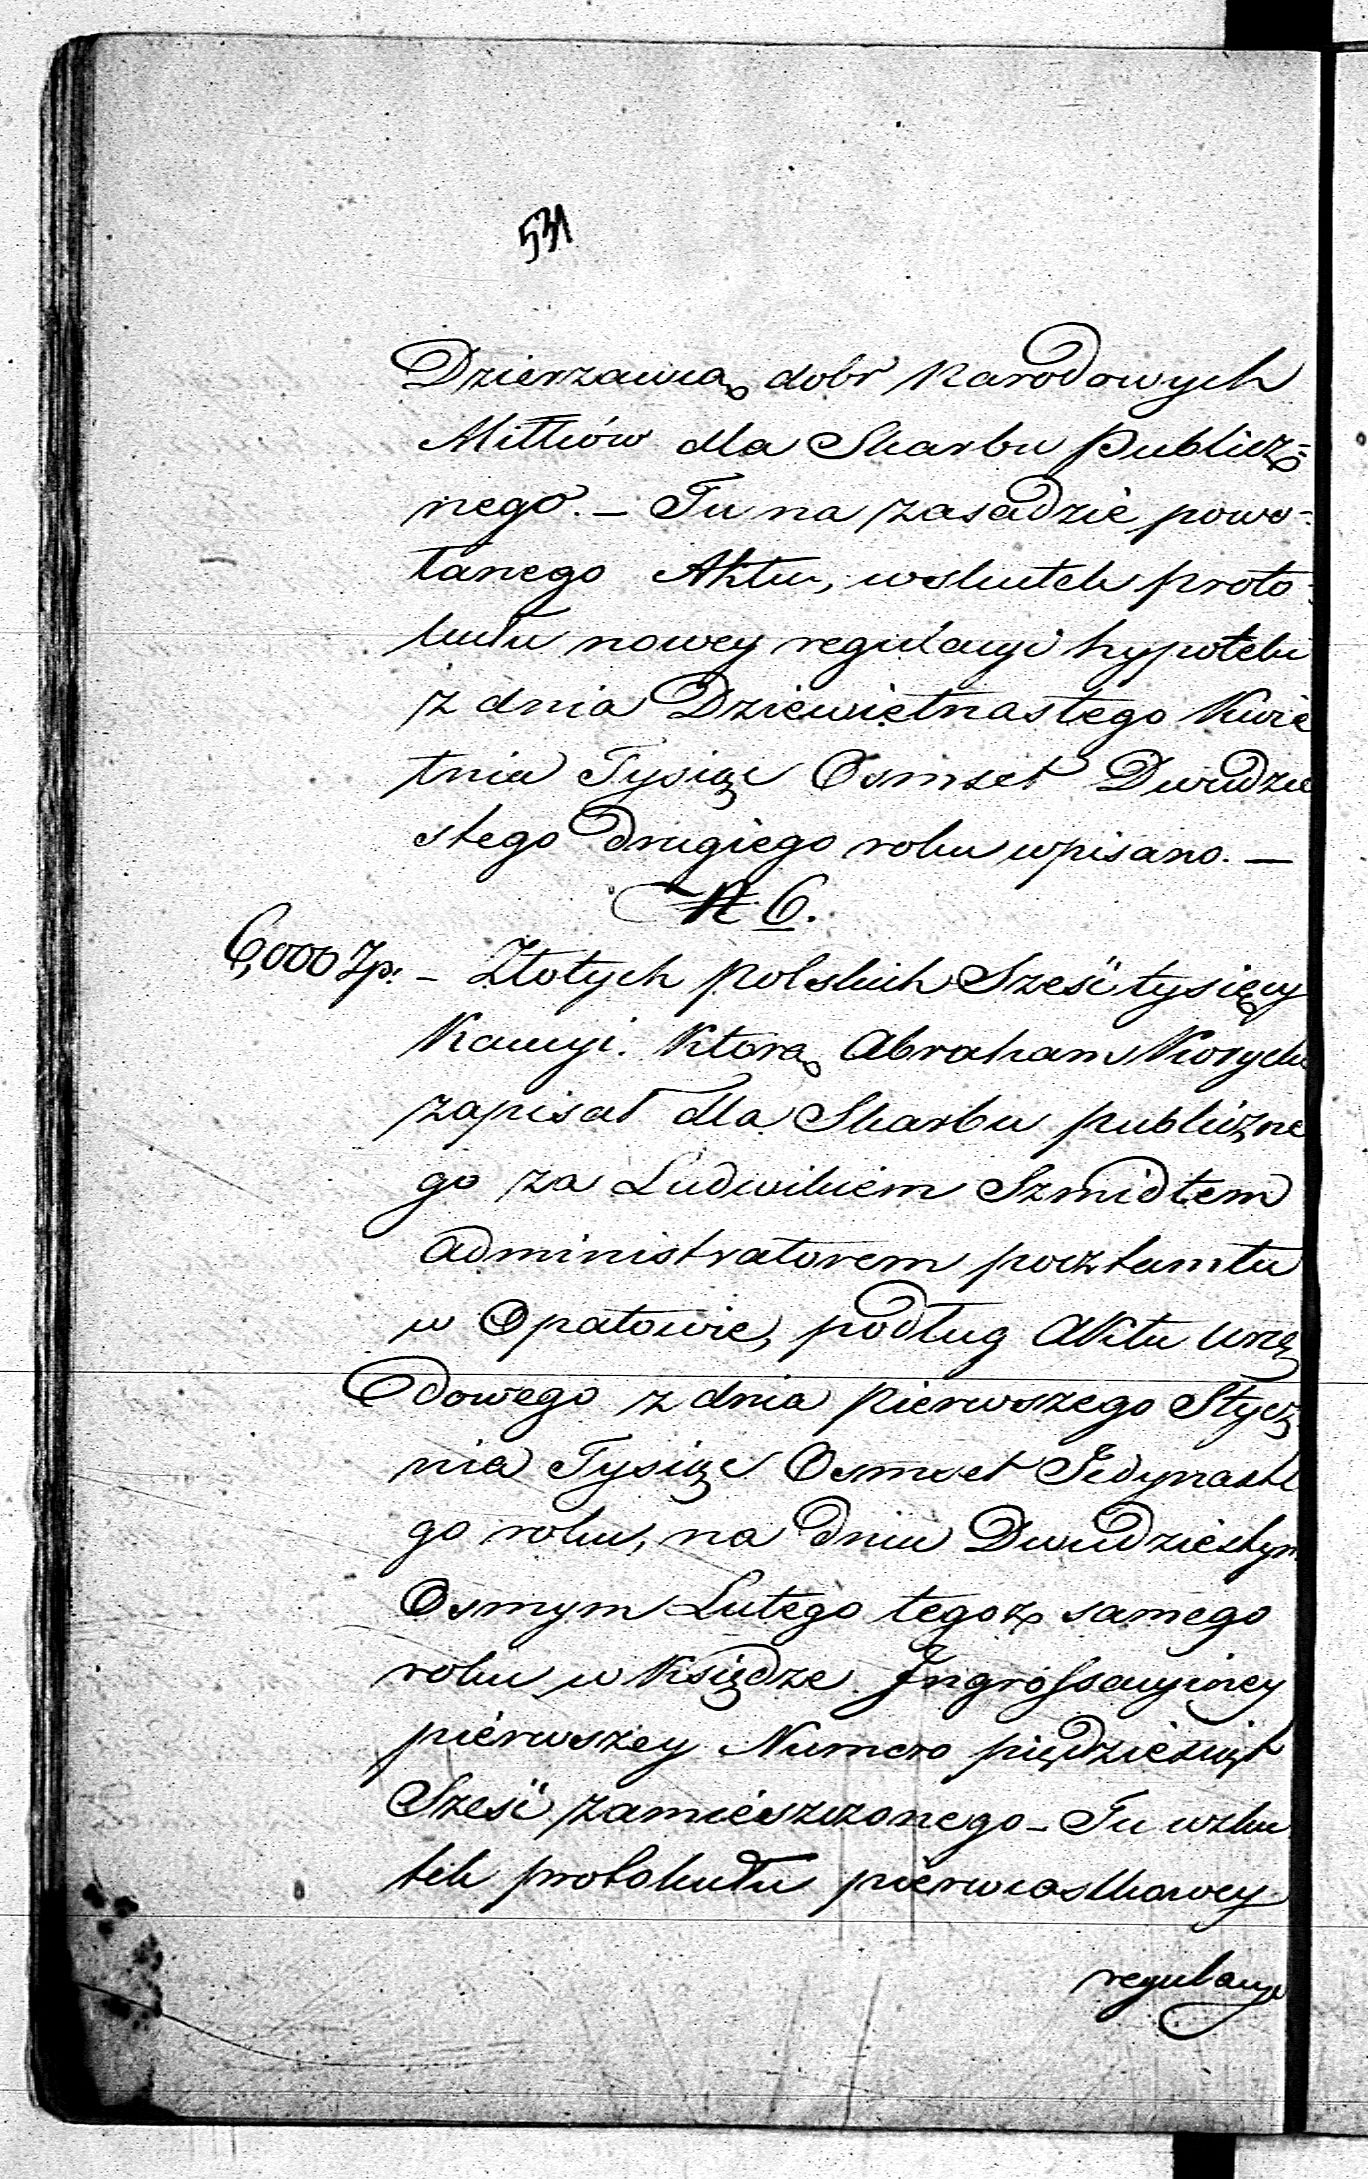 531
Dzierzawią dobr Narodowych
Miłków dla Skarbu Publicz=
nego. – Tu na zasadzie powo-
łanego Aktu, wskutek proto-
kułu nowey regulacyi hypoteki
z dnia Dziewiętnastego Kwie
tnia Tysiąc Osmset Dwudzie
stego drugiego roku wpisano. –
N 6.
6,000 Zp. – Złotych polskich Sześć tysięcy
Kaucyi. Którą Abraham Kosycki
zapisał dla Skarbu publiczne
go za Ludwikiem Szmidtem
Administratorem pocztamtu
w Opatowie, podług Aktu urzę
dowego z dnia pierwszego Stycz
nia Tysiąc Osmset Jedynaste
go roku, na dniu Dwudziestym
Osmym Lutego tegoż samego
roku w Księdze Ingrossacyiney
pierwszey Numero pięćdziesiąt
Sześć zamieszczonego – Tu wsku
tek protokułu pierwiastkowey
regulacyi